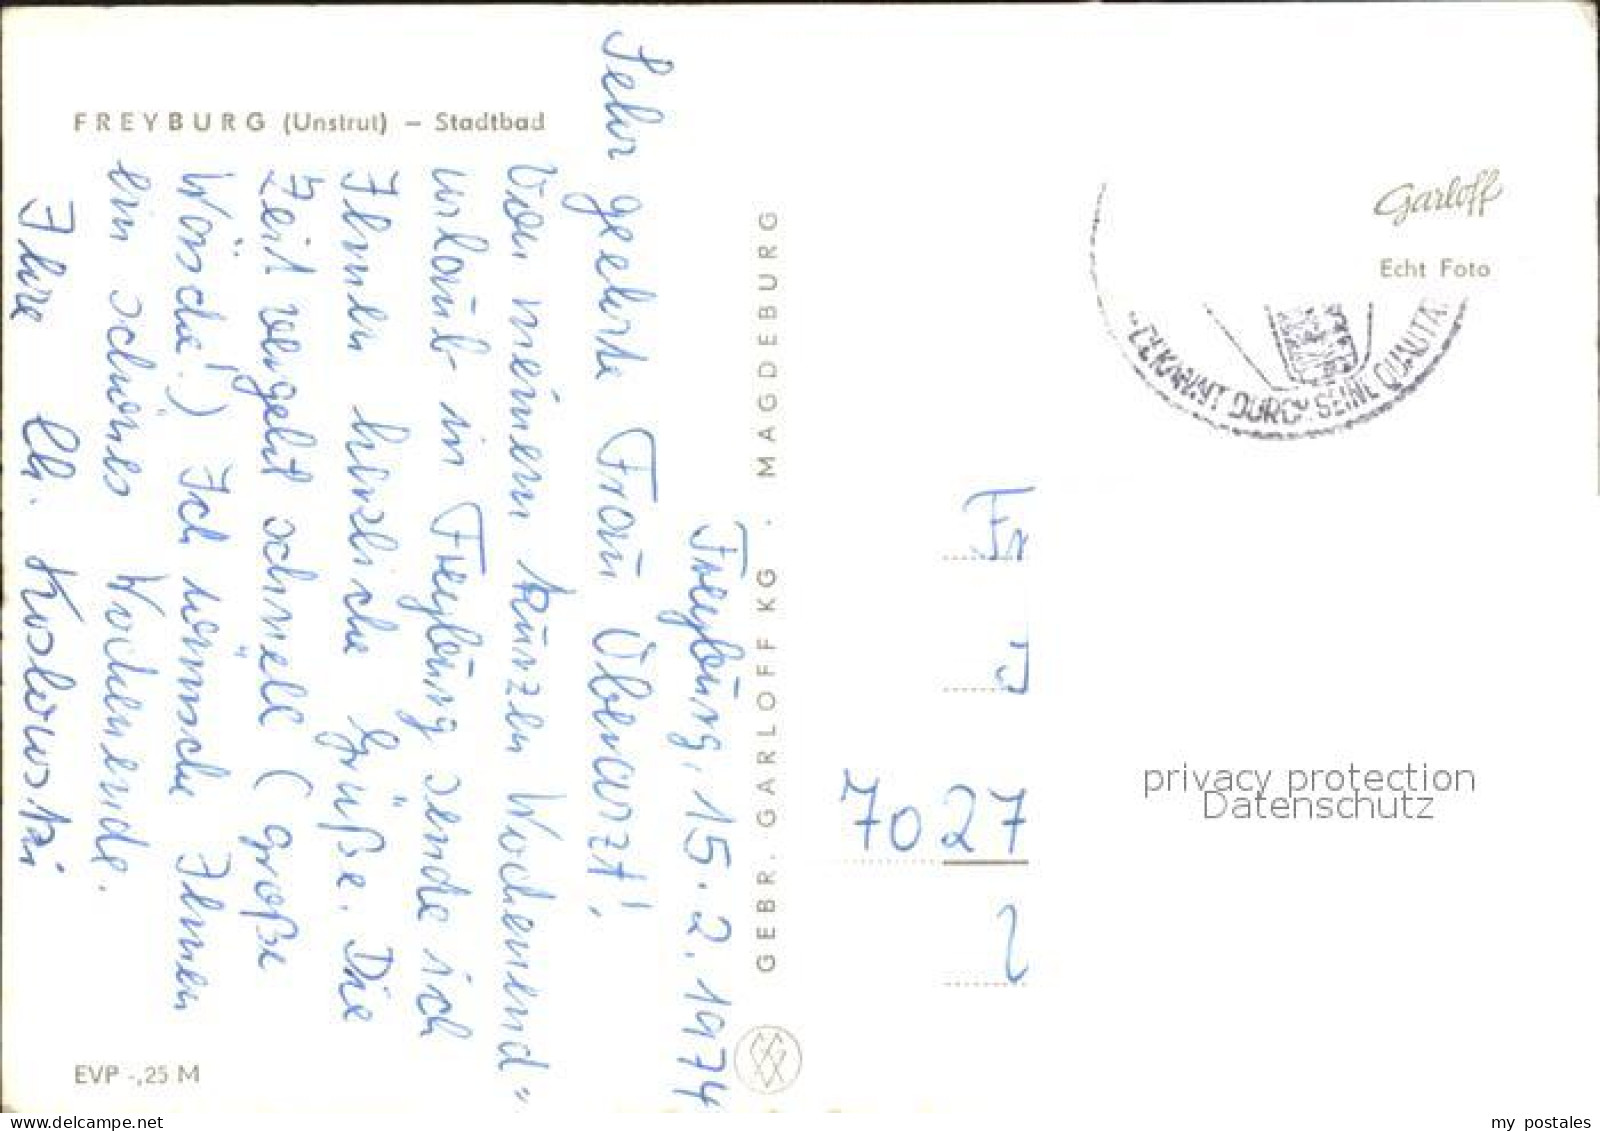 FREYBURG (Unstrut) – Stadtbad
Freyburg, 15.2.1974
Sehr geehrte Frau Obenarzt!
Von meinem kurzen Wochenend=
urlaub in Freyburg sende ich
Ihnen herzliche Grüße. Die
Zeit vergeht schnell (große
Wäsche!) Ich wünsche Ihnen
ein schönes Wochenende.
Ihre Ch. Koslowski
EVP -,25 M
GEBR. GARLOFF KG · MAGDEBURG
Garloff
Echt Foto
DURCH SEINE QUALITÄ
Fr
7027
privacy protection
Datenschutz
www.delcampe.net
my_postales